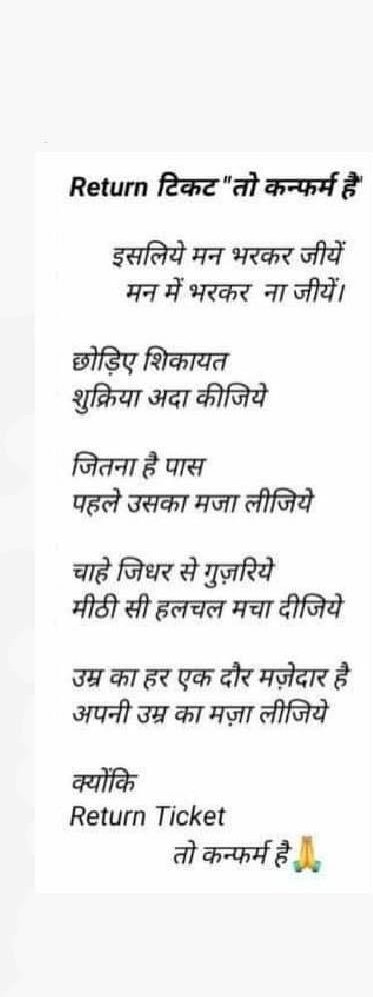 Return टिकट "तो कन्फर्म है"
इसलिये मन भरकर जीयें
मन में भरकर ना जीयें।
छोड़िए शिकायत
शुक्रिया अदा कीजिये
जितना है पास
पहले उसका मजा लीजिये
चाहे जिधर से गुज़रिये
मीठी सी हलचल मचा दीजिये
उम्र का हर एक दौर मज़ेदार है
अपनी उम्र का मज़ा लीजिये
क्योंकि
Return Ticket
तो कन्फर्म है🙏